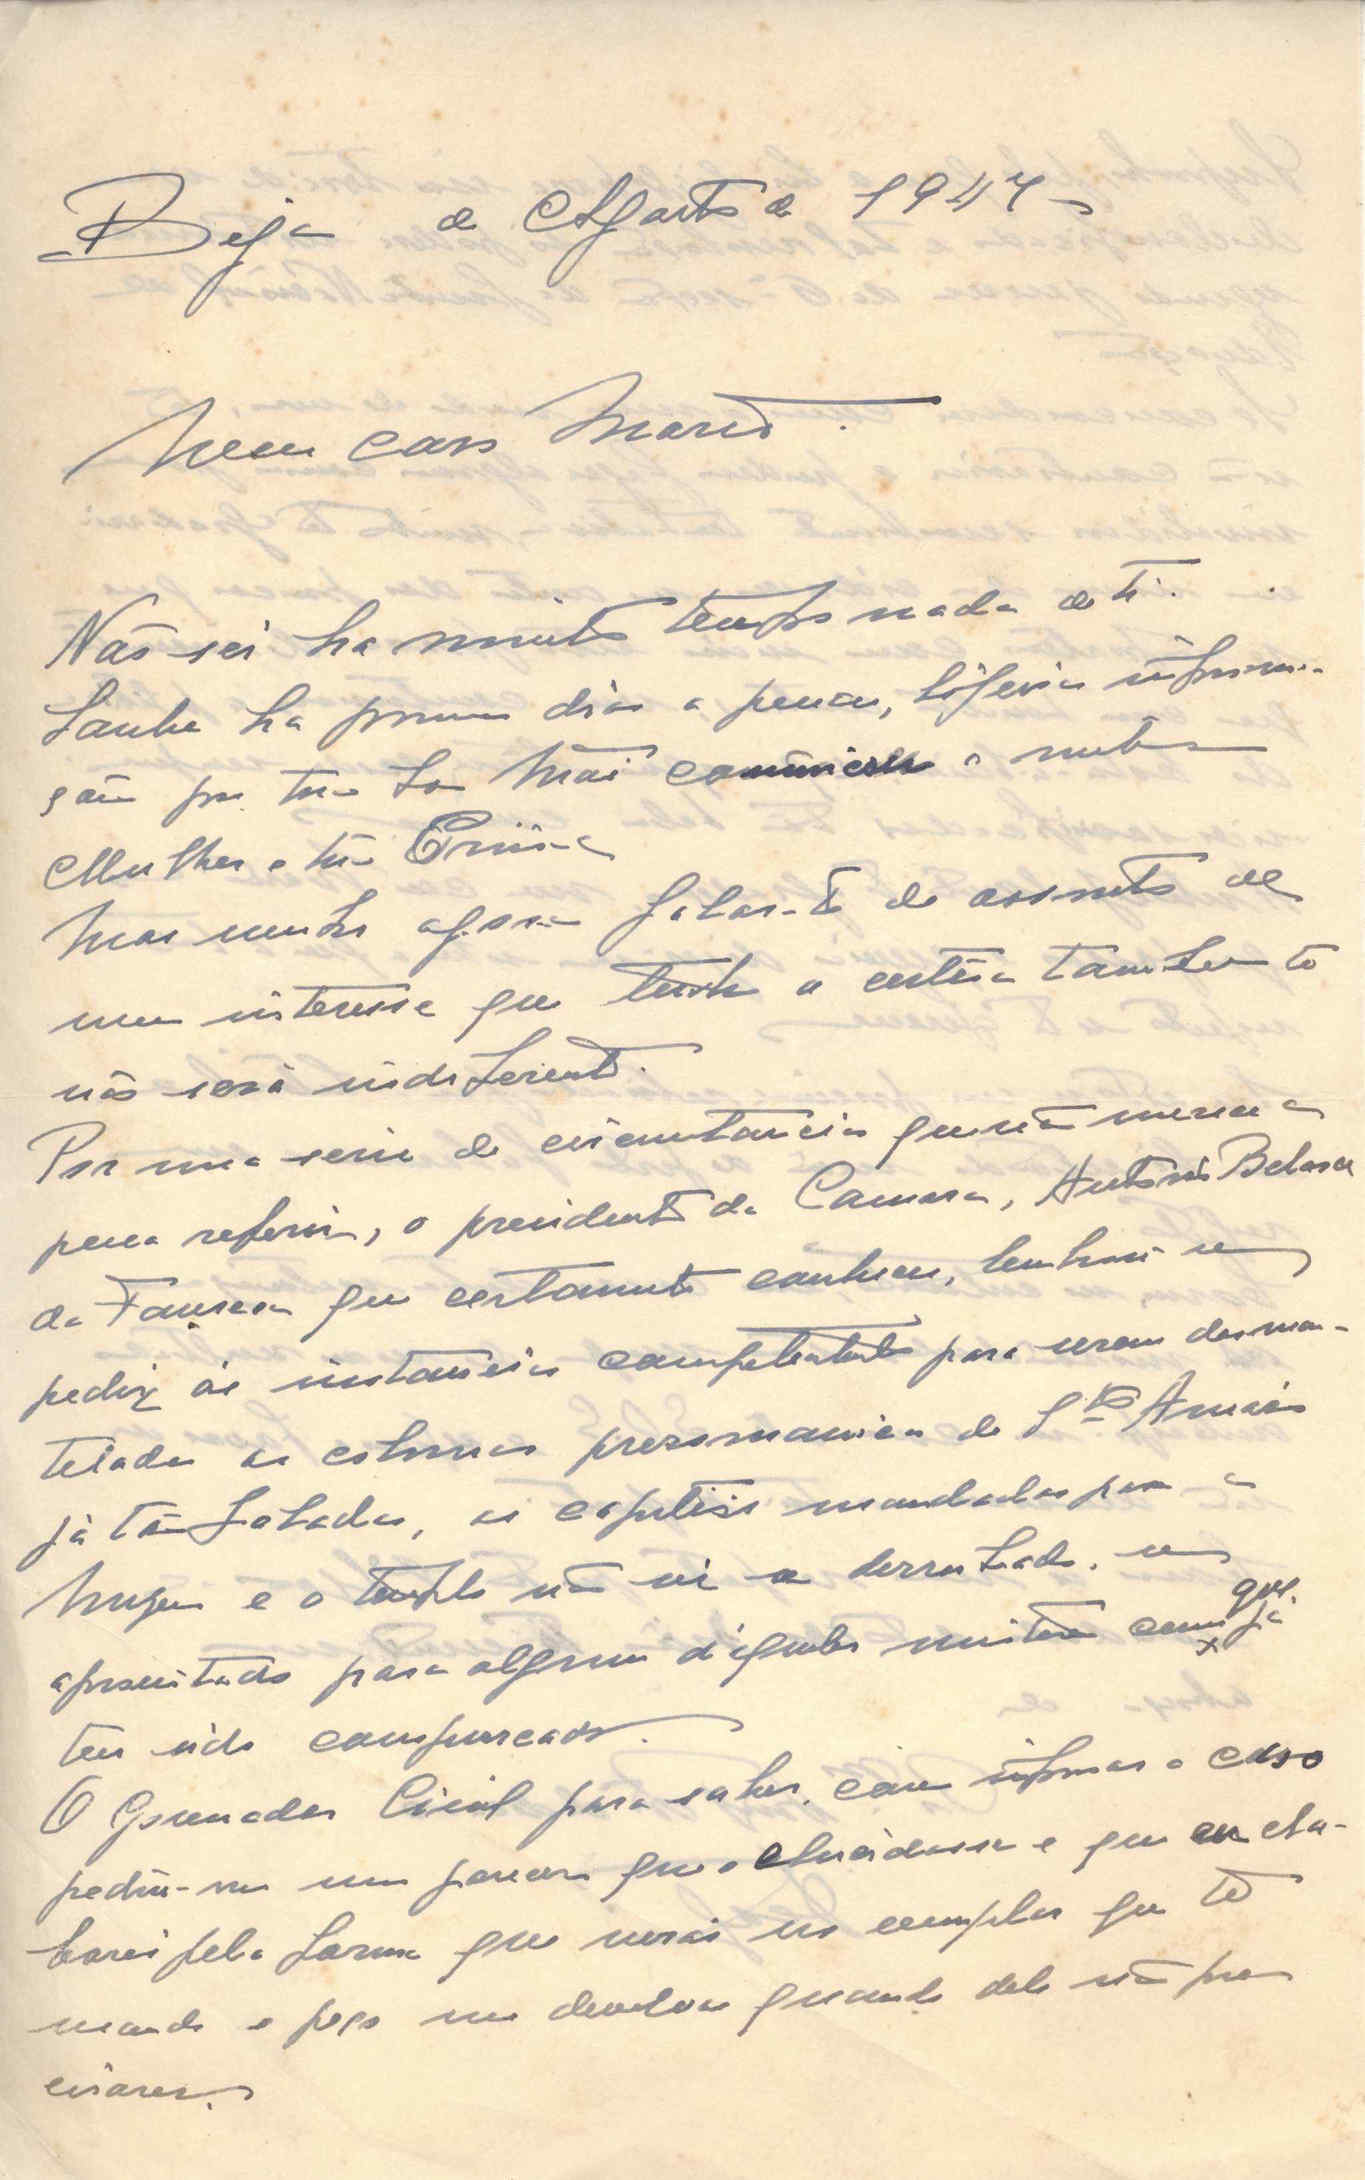 Beja de Agosto de 1947
Meu caro Mario
Não sei ha muito tempo nada de ti.
Soube ha poucos dias a penas, ligeira informa-
ção que tua boa Mãi comunicou a minha
Mulher e tua Prima
Mas venho agora falar-te de assunto de
meu interesse que tenho a certeza tambem te
não será indiferente.
Por uma serie de circunstancias que não merece a
pena referir, o presidente da Camara, Antonio
da Fonseca que certamente conheces, lembrou-se
pedir ás instancias competentes para serem desman-
teladas as colunas preromanicas de Sto Amaro
já tão faladas, os capiteis mandados para o
Museu e o templo não sei se derrubado, se
aproveitado para algum d'aqueles misteres com que já
tem sido conspurcado.
O Governador Civil para saber como informar o caso
pediu-me um parecer que o elucidasse e que eu ela-
borei pela forma que verás no exemplar que te
mando e peço me devolvas quando dele não pre-
cisares.